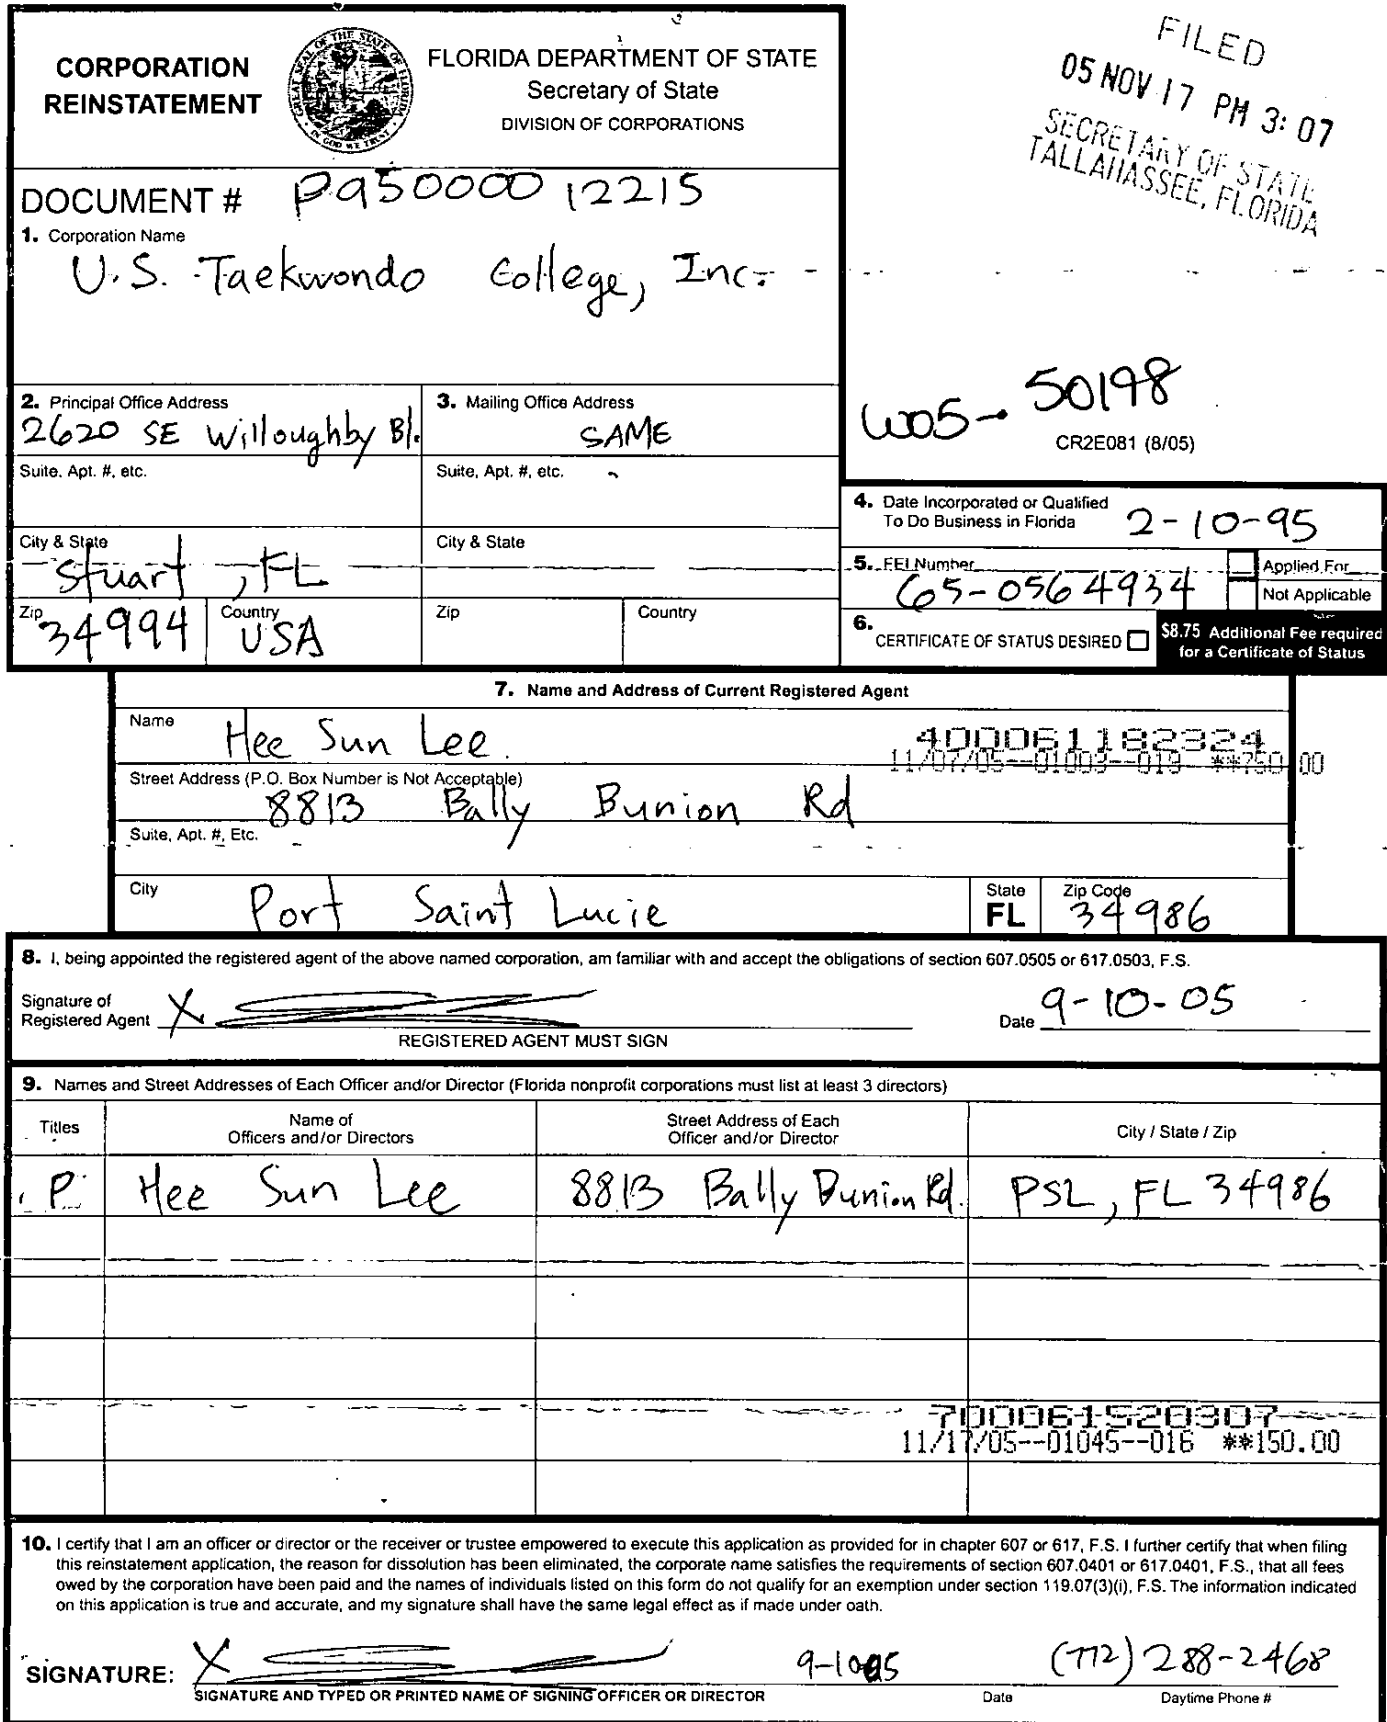 CORPORATION
REINSTATEMENT
GREAT SEAL OF THE STATE OF FLORIDA
IN GOD WE TRUST
FLORIDA DEPARTMENT OF STATE
Secretary of State
DIVISION OF CORPORATIONS
FILED
05 NOV 17 PM 3:07
SECRETARY OF STATE
TALLAHASSEE, FLORIDA
DOCUMENT # P95000012215
1. Corporation Name
U.S. Taekwondo College, Inc.
W05-50198
CR2E081 (8/05)
2. Principal Office Address
2620 SE Willoughby Bl.
3. Mailing Office Address
SAME
Suite. Apt. #, etc.
Suite, Apt. #, etc.
City & State
Stuart, FL
City & State
Zip
34994
Country
USA
Zip
Country
4. Date Incorporated or Qualified
To Do Business in Florida
2-10-95
5. FEI Number
65-0564934
Applied For
Not Applicable
6. CERTIFICATE OF STATUS DESIRED
$8.75 Additional Fee required
for a Certificate of Status
7. Name and Address of Current Registered Agent
Name
Hee Sun Lee
400061182324
11/07/05--01003--019 **750.00
Street Address (P.O. Box Number is Not Acceptable)
8813 Bally Bunion Rd
Suite, Apt. #, Etc.
City
Port Saint Lucie
State
FL
Zip Code
34986
8. I, being appointed the registered agent of the above named corporation, am familiar with and accept the obligations of section 607.0505 or 617.0503, F.S.
Signature of
Registered Agent X
Date 9-10-05
REGISTERED AGENT MUST SIGN
9. Names and Street Addresses of Each Officer and/or Director (Florida nonprofit corporations must list at least 3 directors)
Titles
Name of
Officers and/or Directors
Street Address of Each
Officer and/or Director
City / State / Zip
P Hee Sun Lee 8813 Bally Bunion Rd. PSL, FL 34986
700061520307
11/17/05--01045--016 **150.00
10. I certify that I am an officer or director or the receiver or trustee empowered to execute this application as provided for in chapter 607 or 617, F.S. I further certify that when filing
this reinstatement application, the reason for dissolution has been eliminated, the corporate name satisfies the requirements of section 607.0401 or 617.0401, F.S., that all fees
owed by the corporation have been paid and the names of individuals listed on this form do not qualify for an exemption under section 119.07(3)(i), F.S. The information indicated
on this application is true and accurate, and my signature shall have the same legal effect as if made under oath.
SIGNATURE: X
(772) 288-2468
SIGNATURE AND TYPED OR PRINTED NAME OF SIGNING OFFICER OR DIRECTOR
Date
Daytime Phone #